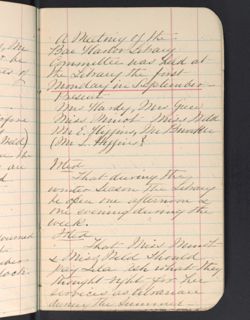 A Meeting of the
Bar Harbor Library
Committee was held at
the Library the first
Monday in September -
Present
Mrs Hardy, Mrs
Miss Minot - Miss Weld
Mr E. Higgins, Mr Bunker
(Mr L. Higgins)
Voted
That during the
winter season the Library
be open one afternoon &
one evening during the
week.
Voted
That Miss Minot
& Miss Weld should
pay what they
thought right for her
services as
during the Summer -